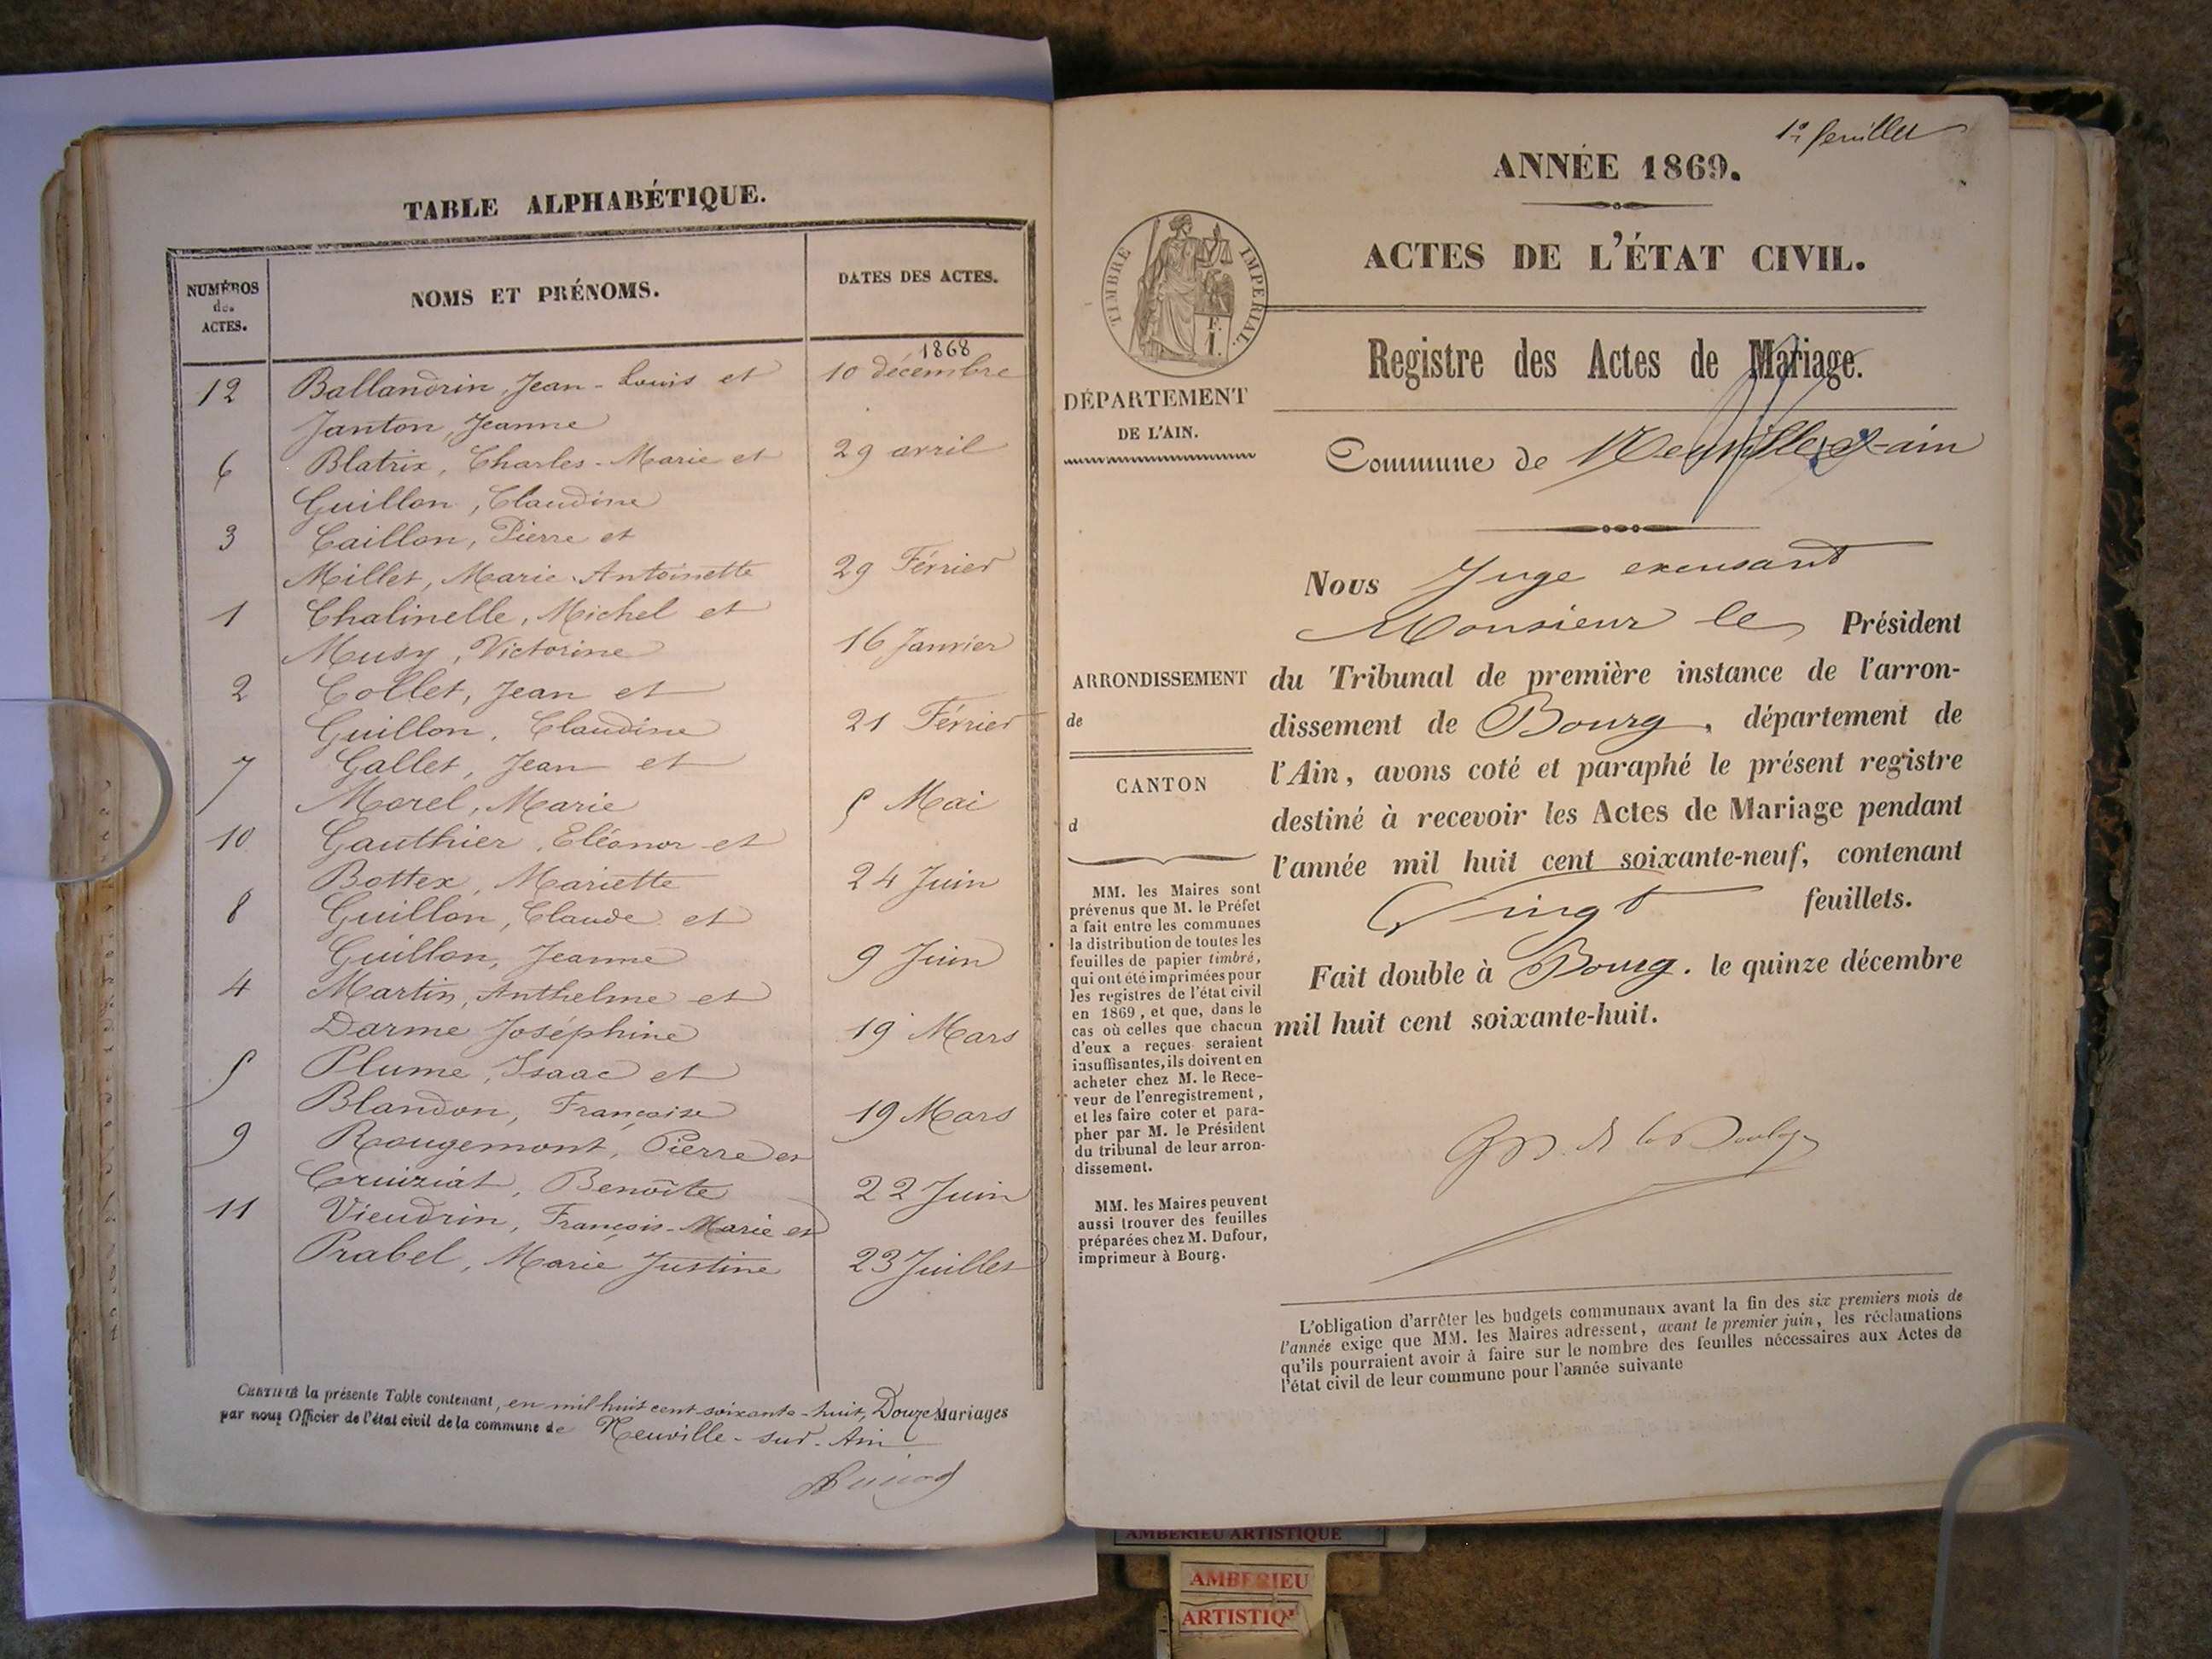 TABLE ALPHABÉTIQUE.
NUMÉROS
des
ACTES.
NOMS ET PRÉNOMS.
DATES DES ACTES.
1868
12 Ballandrin, Jean-Louis et 10 décembre
Janton, Jeanne
6 Blatrix, Charles-Marie et 29 avril
Guillon, Claudine
3 Caillon, Pierre et
Millet, Marie-Antoinette 29 Février
1 Chalinelle, Michel et
Musy, Victorine 16 Janvier
2 Collet, Jean et
Guillon, Claudine 21 Février
7 Gallet, Jean et
Morel, Marie 5 Mai
10 Gauthier, Eléonor et
Bottex, Mariette 24 Juin
8 Guillon, Claude et
Guillon, Jeanne 9 Juin
4 Martin, Anthelme et
Darme Joséphine 19 Mars
5 Plume, Isaac et
Blandon, Françoise 19 Mars
9 Rougemont, Pierre et
Cruiziat, Benoîte 22 Juin
11 Vieudrin, François-Marie et
Prabel, Marie Justine 23 Juillet
CERTIFIÉ la présente Table contenant, en mil huit cent soixante-huit, Douze Mariages
par nous Officier de l'état civil de la commune de Neuville-sur-Ain
1er feuillet
ANNÉE 1869.
ACTES DE L'ÉTAT CIVIL.
TIMBRE IMPÉRIAL.
F.
1.
Registre des Actes de Mariage.
DÉPARTEMENT
DE L'AIN.
Commune de Neuville-s-ain
Nous Juge excusant
Monsieur le Président
du Tribunal de première instance de l'arron-
dissement de Bourg, département de
l'Ain, avons coté et paraphé le présent registre
destiné à recevoir les Actes de Mariage pendant
l'année mil huit cent soixante-neuf, contenant
Vingt feuillets.
Fait double à Bourg. le quinze décembre
mil huit cent soixante-huit.
ARRONDISSEMENT
de
CANTON
d
MM. les Maires sont
prévenus que M. le Préfet
a fait entre les communes
la distribution de toutes les
feuilles de papier timbré,
qui ont été imprimées pour
les registres de l'état civil
en 1869, et que, dans le
cas où celles que chacun
d'eux a reçues seraient
insuffisantes, ils doivent en
acheter chez M. le Rece-
veur de l'enregistrement,
et les faire coter et para-
pher par M. le Président
du tribunal de leur arron-
dissement.
MM. les Maires peuvent
aussi trouver des feuilles
préparées chez M. Dufour,
imprimeur à Bourg.
L'obligation d'arrêter les budgets communaux avant la fin des six premiers mois de
l'année exige que MM. les Maires adressent, avant le premier juin, les réclamations
qu'ils pourraient avoir à faire sur le nombre des feuilles nécessaires aux Actes de
l'état civil de leur commune pour l'année suivante
AMBERIEU ARTISTIQUE
AMBERIEU
ARTISTIQ